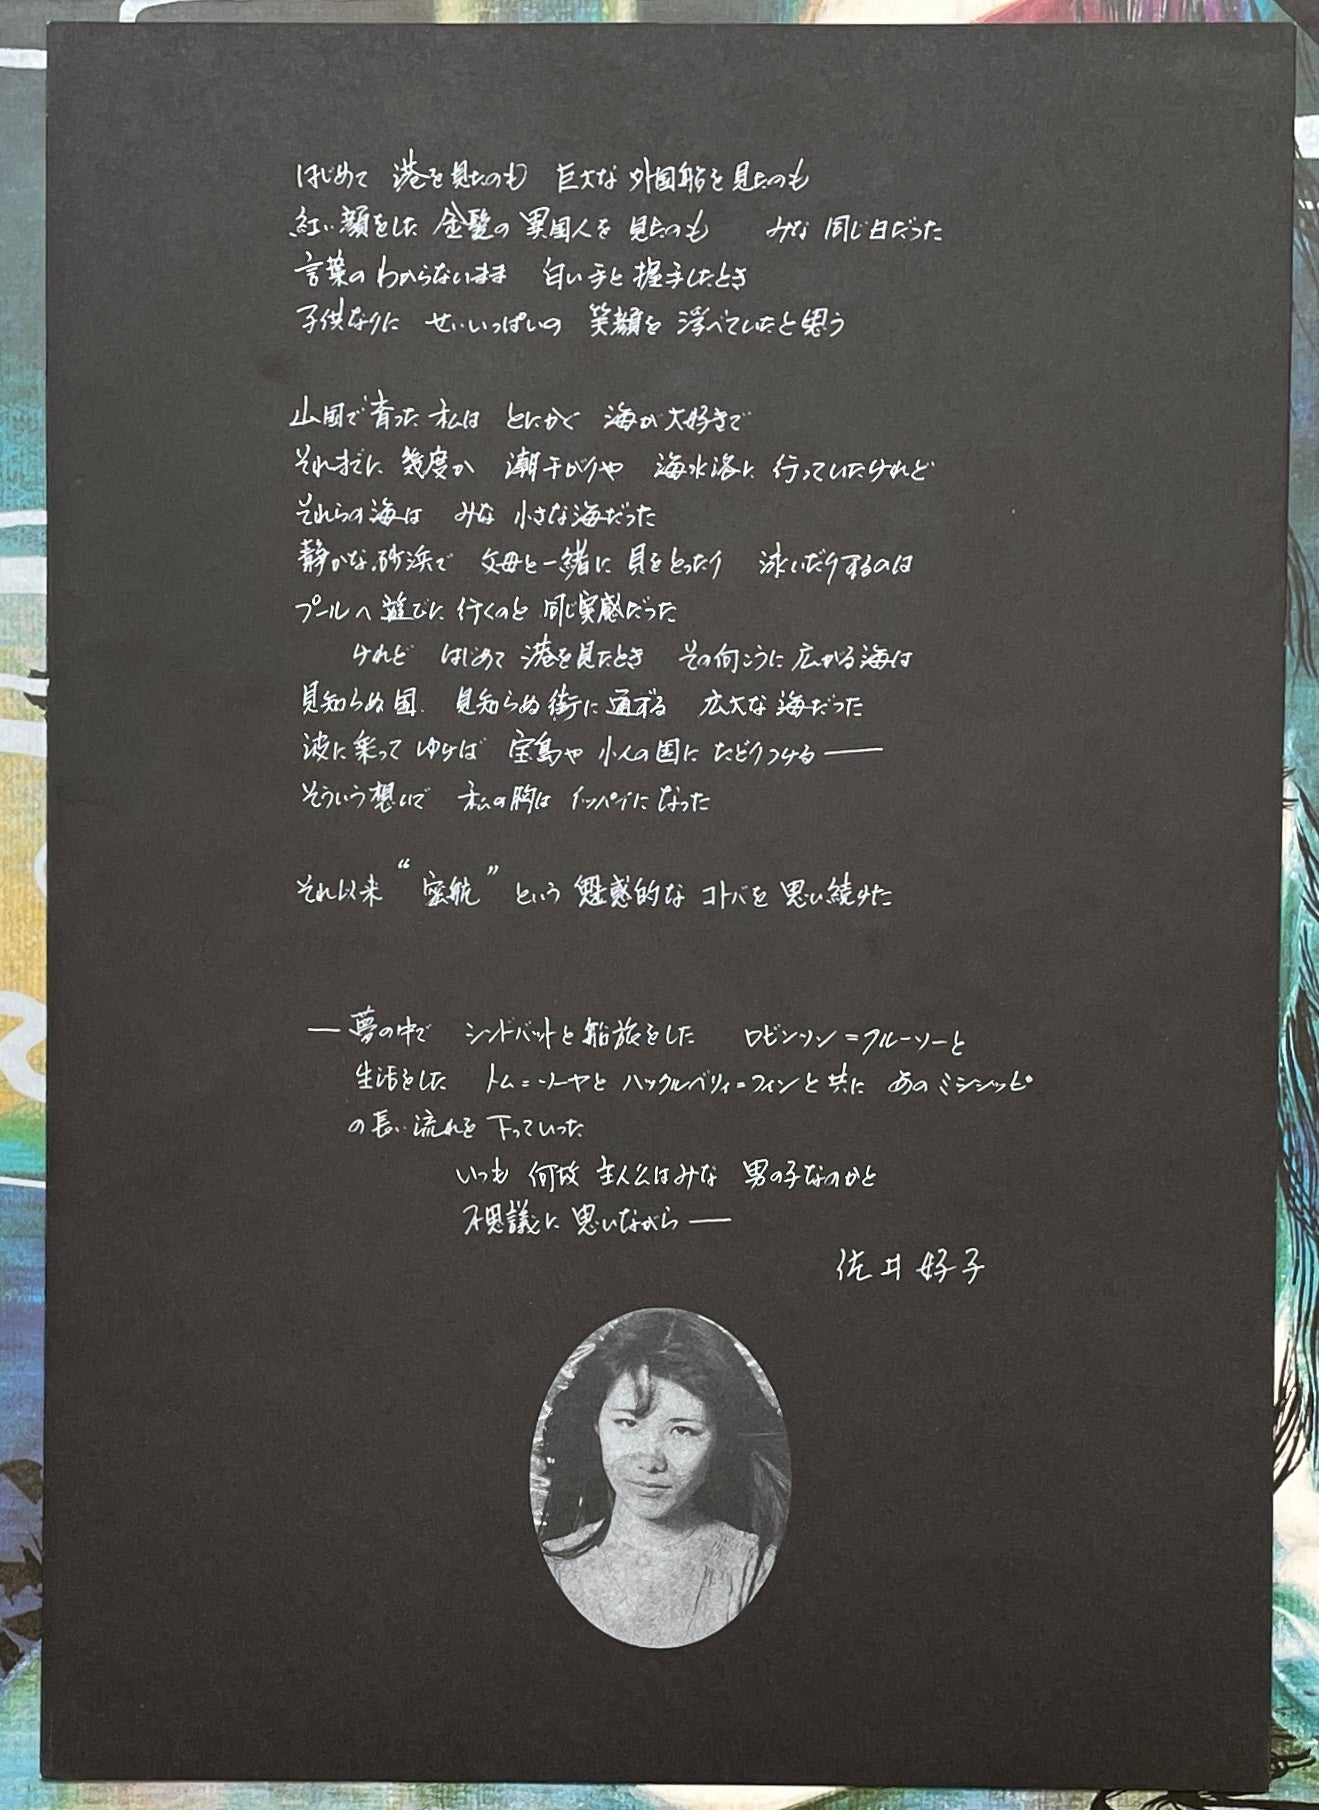 はじめて 港を見たのも 巨大な 外国船を 見たのも
紅い顔をした 金髪の 異国人を 見たのも みな 同じ日だった
言葉の わからないまま 白い手と 握手したとき
子供なりに せいいっぱいの 笑顔を 浮べていたと思う
山国で育った 私は とにかく 海が大好きで
それまでに 幾度か 潮干がりや 海水浴に 行っていたけれど
それらの海は みな 小さな海だった
静かな砂浜で 父母と一緒に 貝をとったり 泳いだりするのは
プールへ遊びに 行くのと 同じ実感だった
けれど はじめて 港を見たとき その向こうに 広がる海は
見知らぬ国 見知らぬ街に 通ずる 広大な海だった
波に乗って ゆけば 宝島や 小人の国に たどりつける──
そういう想いで 私の胸は イッパイになった
それ以来 “密航” という 魅惑的な コトバを 思い続けた
──夢の中で シンドバットと 船旅をした ロビンソン＝クルーソーと
生活をした トム＝ソーヤと ハックルベリィ＝フィンと共に あのミシシッピ
の長い流れを 下っていった
いつも 何故 主人公はみな 男の子なのかと
不思議に 思いながら──
佐井好子